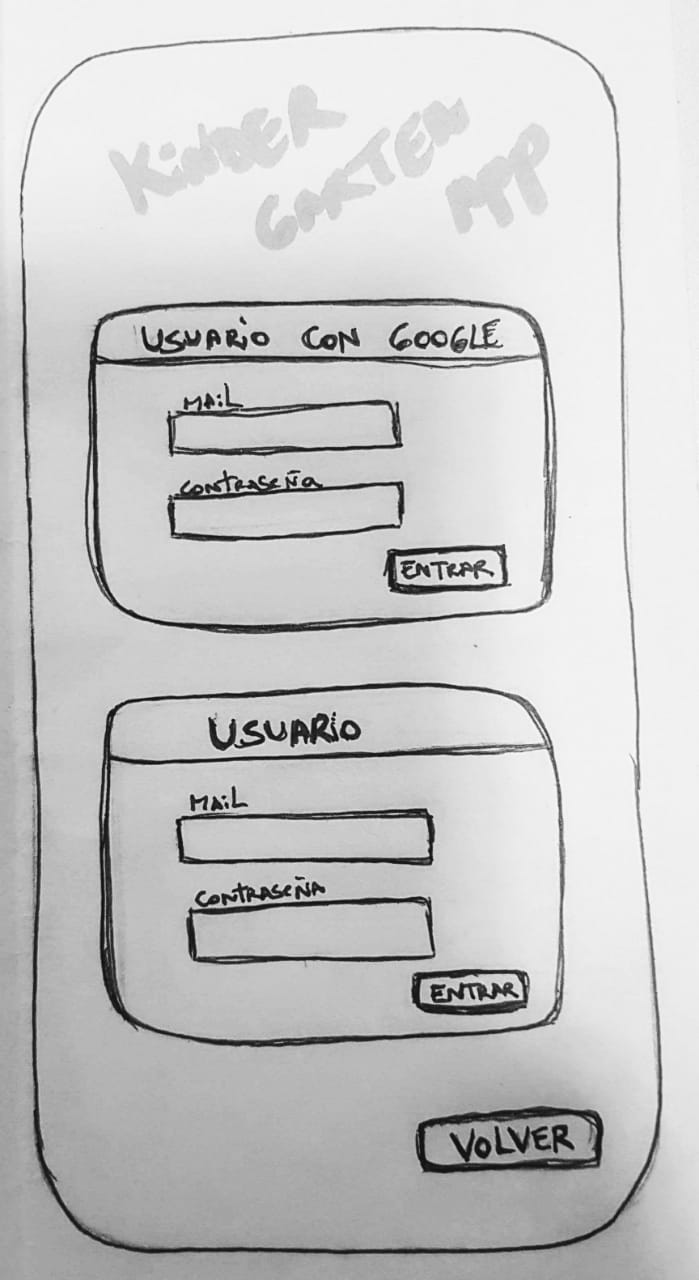 KiNDER
GARTEN
APP
USUARiO CON GOOGLE
MAiL
CONTRASEÑA
ENTRAR
USUARiO
MAiL
CONTRASEÑA
ENTRAR
VOLVER